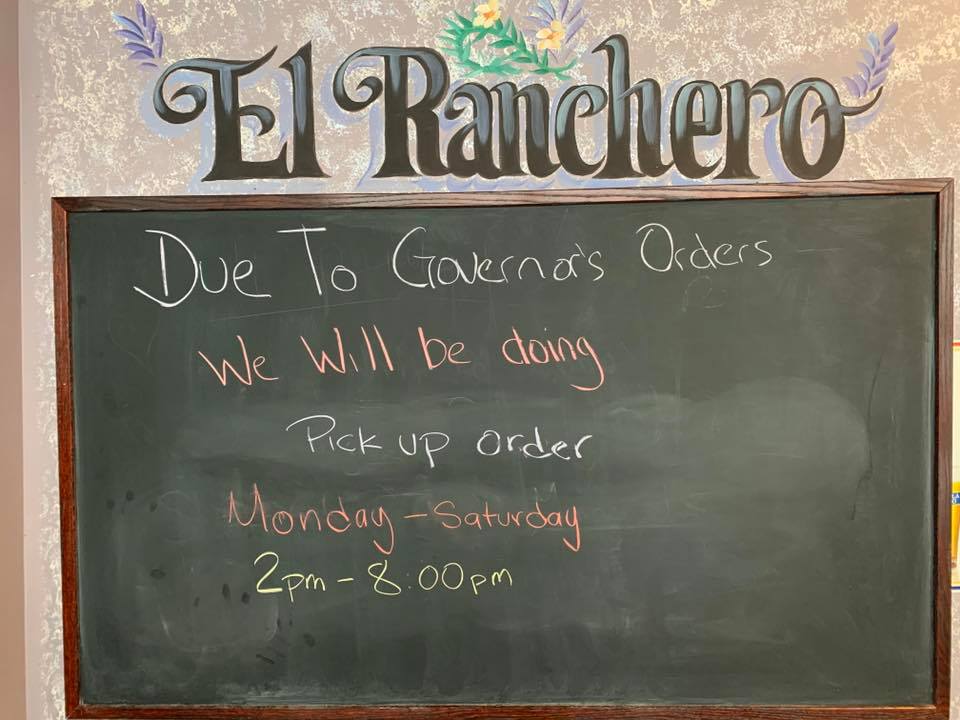 El Ranchero
Due To Governor's Orders
We Will be doing
Pick up order
Monday - Saturday
2pm - 8:00pm